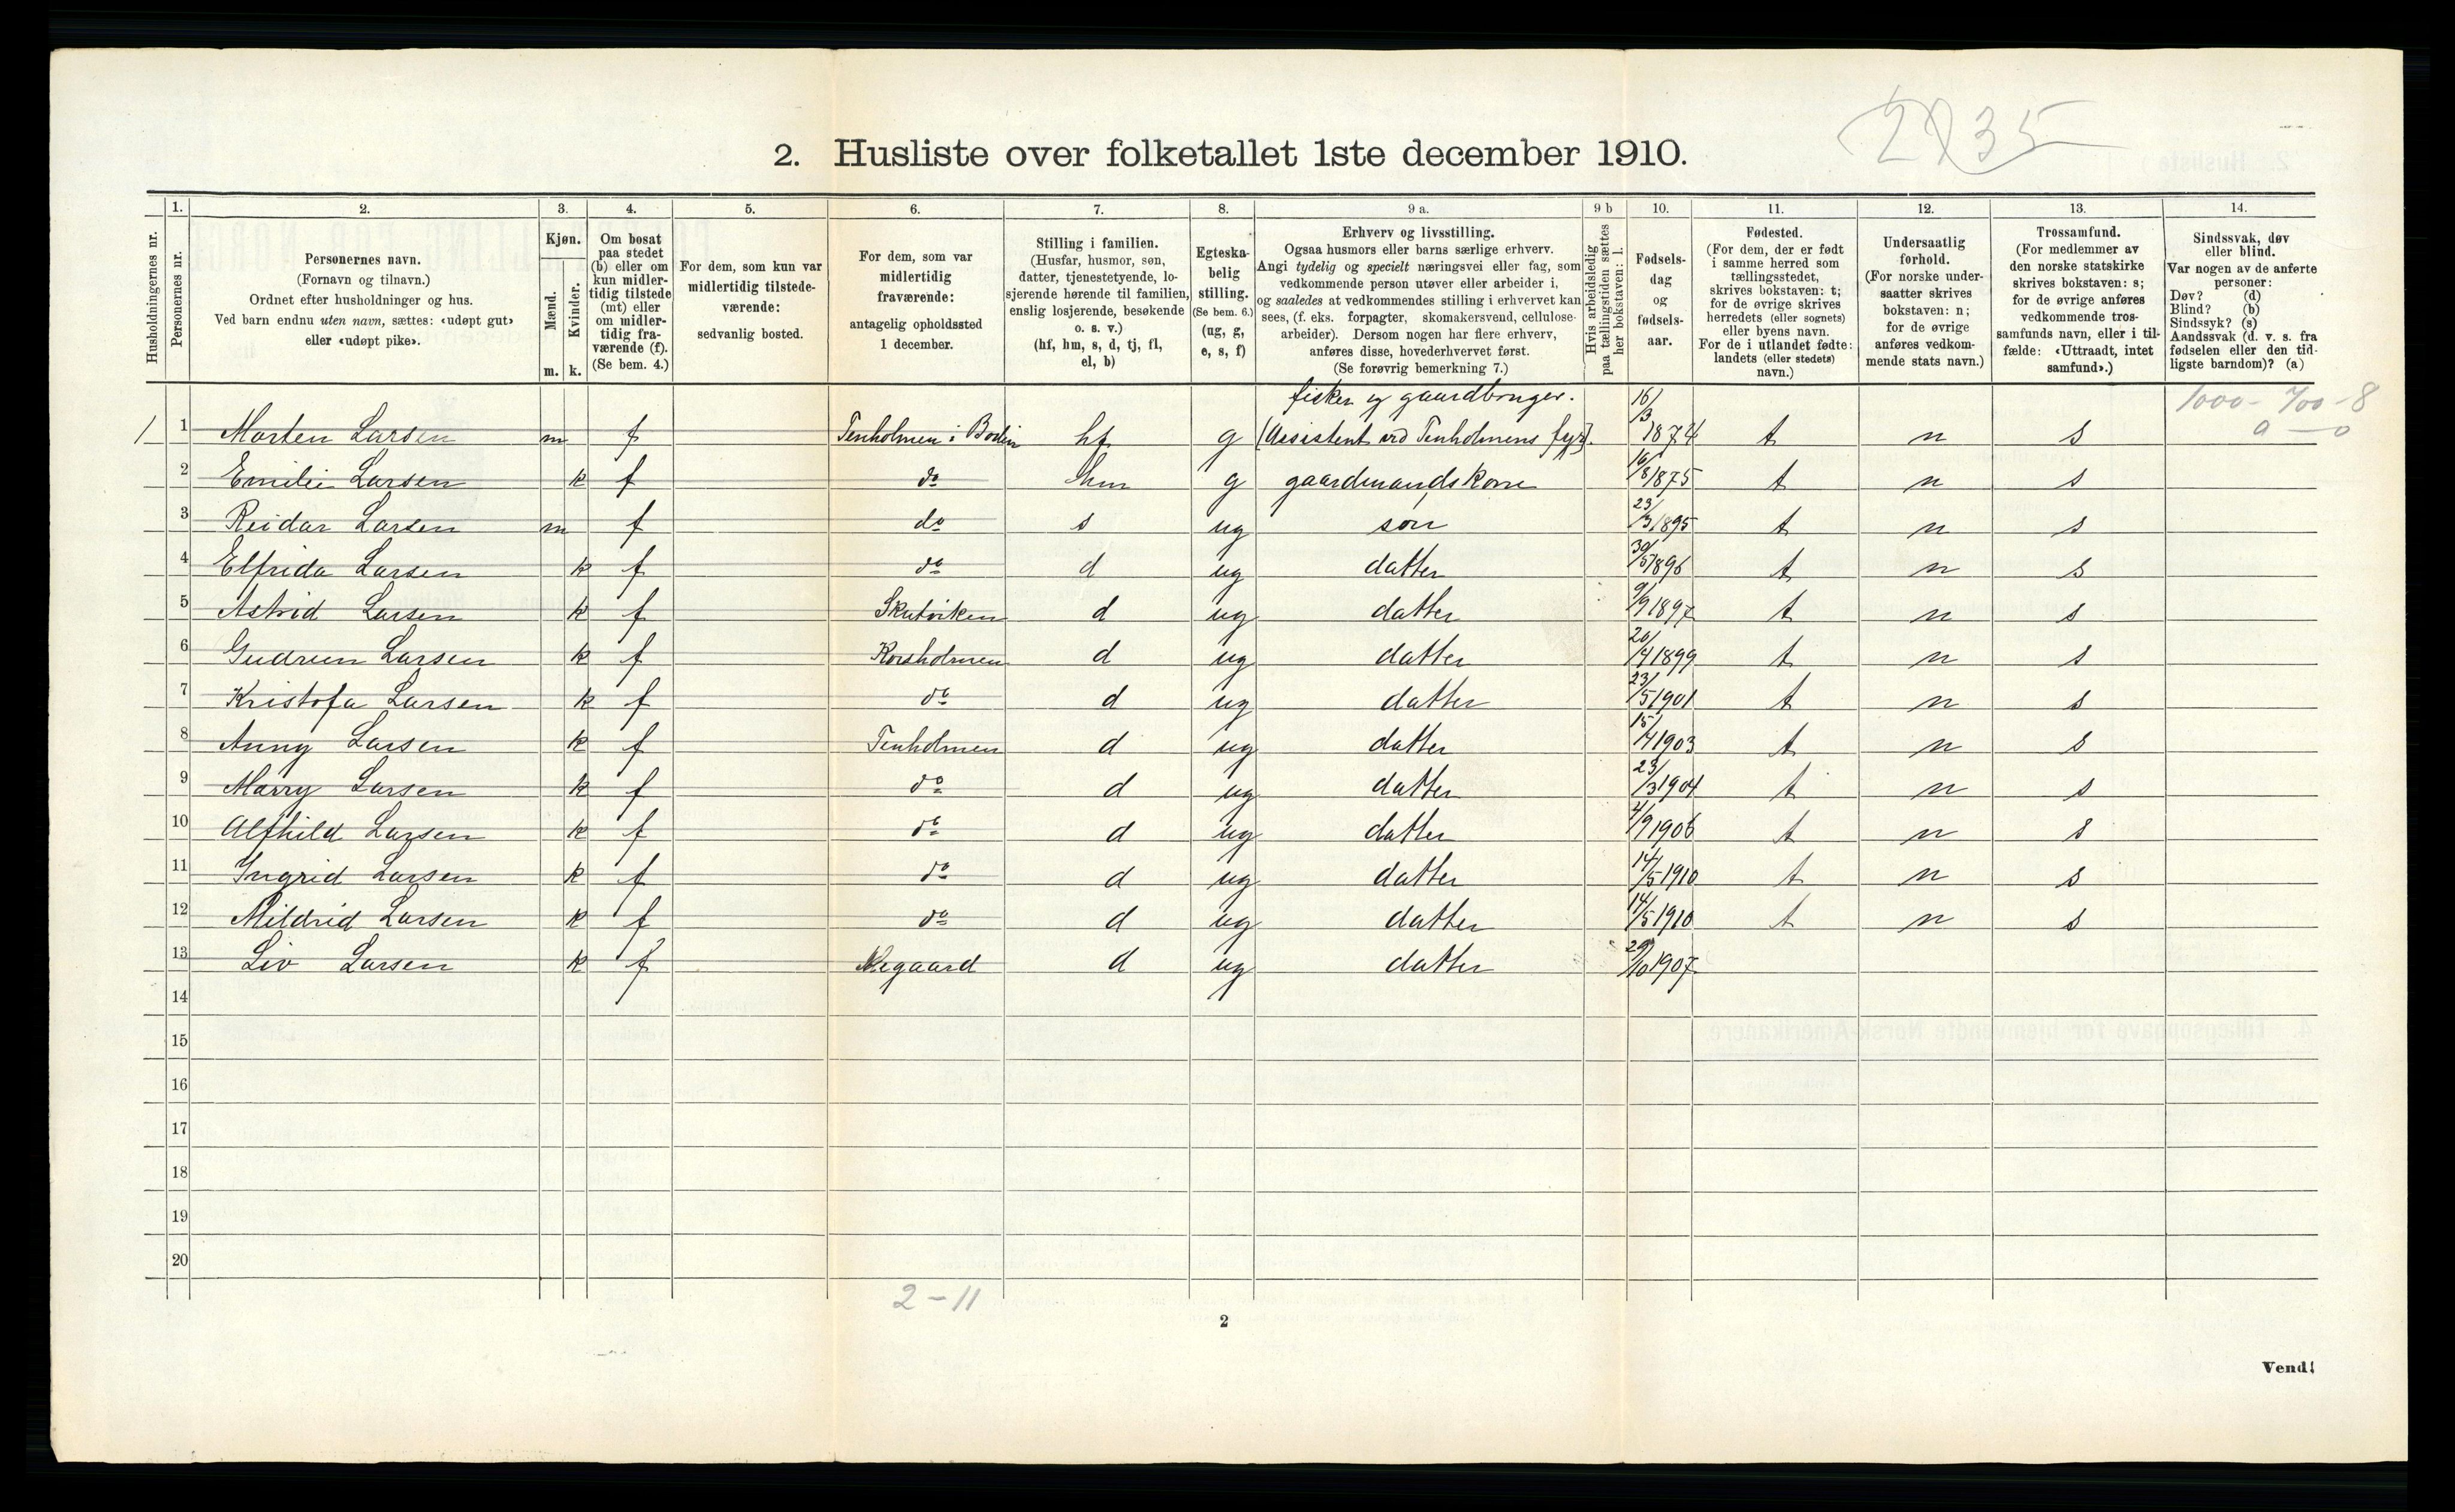 2235
2. Husliste over folketallet 1ste december 1910.
Husholdningernes nr.
1. Personernes nr.
2. Personernes navn. (Fornavn og tilnavn.) Ordnet efter husholdninger og hus. Ved barn endnu uten navn, sættes: «udøpt gut» eller «udøpt pike».
3. Kjøn. Mænd. m. Kvinder. k.
4. Om bosat paa stedet (b) eller om kun midler-tidig tilstede (mt) eller om midler-tidig fra-værende (f). (Se bem. 4.)
5. For dem, som kun var midlertidig tilstede-værende: sedvanlig bosted.
6. For dem, som var midlertidig fraværende: antagelig opholdssted 1 december.
7. Stilling i familien. (Husfar, husmor, søn, datter, tjenestetyende, lo-sjerende hørende til familien, enslig losjerende, besøkende o. s. v.) (hf, hm, s, d, tj, fl, el, b)
8. Egteska-belig stilling. (Se bem. 6.) (ug, g, e, s, f)
9 a. Erhverv og livsstilling. Ogsaa husmors eller barns særlige erhverv. Angi tydelig og specielt næringsvei eller fag, som vedkommende person utøver eller arbeider i, og saaledes at vedkommendes stilling i erhvervet kan sees, (f. eks. forpagter, skomakersvend, cellulose-arbeider). Dersom nogen har flere erhverv, anføres disse, hovederhvervet først. (Se forøvrig bemerkning 7.)
9 b Hvis arbeidsledig paa tællingstiden sættes her bokstaven: l.
10. Fødsels-dag og fødsels-aar.
11. Fødested. (For dem, der er født i samme herred som tællingsstedet, skrives bokstaven: t; for de øvrige skrives herredets (eller sognets) eller byens navn. For de i utlandet fødte: landets (eller stedets) navn.)
12. Undersaatlig forhold. (For norske under-saatter skrives bokstaven: n; for de øvrige anføres vedkom-mende stats navn.)
13. Trossamfund. (For medlemmer av den norske statskirke skrives bokstaven: s; for de øvrige anføres vedkommende tros-samfunds navn, eller i til-fælde: «Uttraadt, intet samfund».)
14. Sindssvak, døv eller blind. Var nogen av de anførte personer: Døv? (d) Blind? (b) Sindssyk? (s) Aandssvak (d. v. s. fra fødselen eller den tid-ligste barndom)? (a)
fisker og gaardbruger. 1000 - 700 - 8
1 1 Morten Larsen m f Tenholmen i Bodin hf g (Assistent ved Tenholmens fyr). 16/3 1874 t n s 0 — 0
2 Emilie Larsen k f do hm g gaardmandskone 16/8 1875 t n s
3 Reidar Larsen m f do s ug søn 23/3 1895 t n s
4 Elfrida Larsen k f do d ug datter 30/5 1896 t n s
5 Astrid Larsen k f Skutviken d ug datter 9/9 1897 t n s
6 Gudrun Larsen k f Korsholmen d ug datter 20/4 1899 t n s
7 Kristofa Larsen k f do d ug datter 23/5 1901 t n s
8 Anny Larsen k f Tenholmen d ug datter 15/4 1903 t n s
9 Marry Larsen k f do d ug datter 23/3 1904 t n s
10 Alfhild Larsen k f do d ug datter 4/9 1906 t n s
11 Ingrid Larsen k f do d ug datter 14/5 1910 t n s
12 Mildrid Larsen k f do d ug datter 14/5 1910 t n s
13 Liv Larsen k f d ug datter 29/10 1907
14
15
16
17
18
19
20
2 - 11
2
Vend!